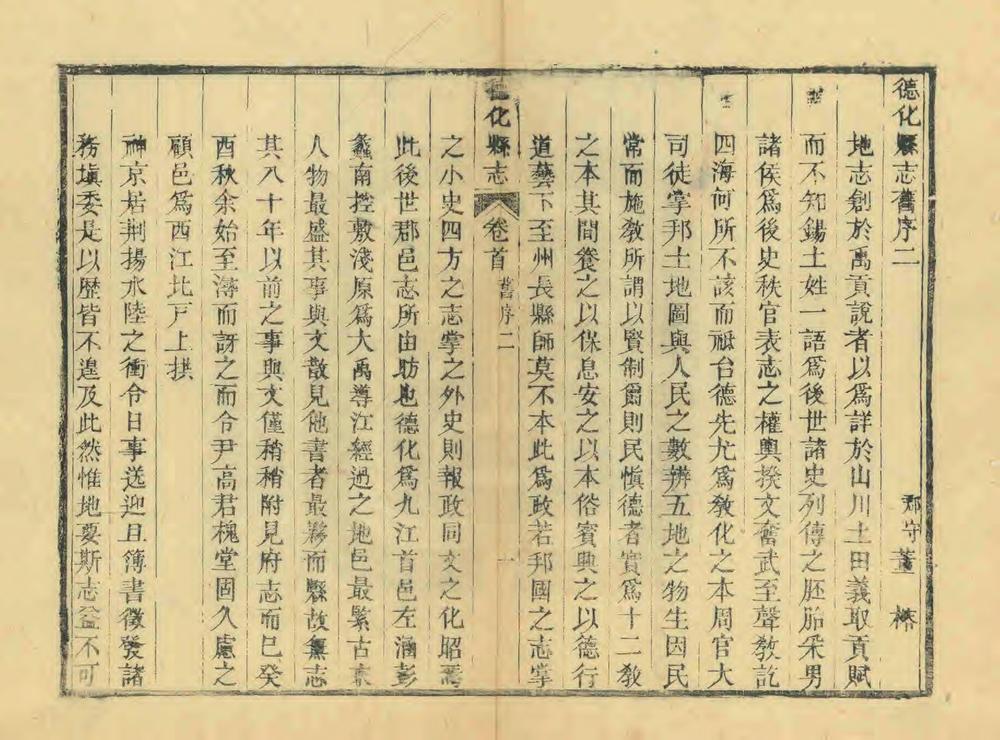 德化縣志舊序二 郡守董榕
地志創於禹貢說者以爲詳於山川土田義取貢賦
而不知錫土姓一語爲後世諸史列傳之胚胎采男
諸侯爲後史秩官表志之權輿揆文奮武至聲敎訖
四海何所不該而祗台德先尤爲敎化之本周官大
司徒掌邦土地圖與人民之數辨五地之物生因民
常而施敎所謂以賢制爵則民愼德者實爲十二敎
之本其間養之以保息安之以本俗賓興之以德行
道藝下至州長縣師莫不本此爲政若邦國之志掌
德化縣志 卷首 舊序二 一
之小史四方之志掌之外史則報政同文之化昭焉
此後世郡邑志所由昉也德化爲九江首邑左涵彭
蠡南控敷淺原爲大禹導江經過之地邑最緊古來
人物最盛其事與文散見他書者最夥而縣故無志
其八十年以前之事與文僅稍稍附見府志而已癸
酉秋余始至潯而訝之而令尹高君槐堂固久慮之
顧邑爲西江北戸上拱
神京居荆揚水陸之衝令日事送迎且簿書徵發諸
務塡委是以歷皆不遑及此然惟地要斯志益不可